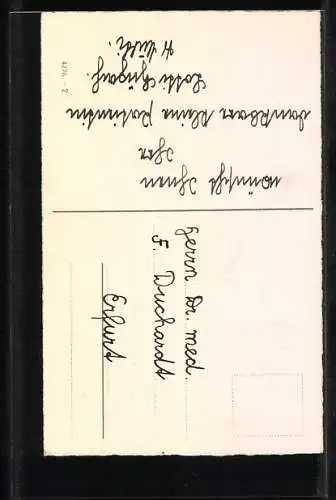 wünscht Ihnen
Ihre
dankbare kleine Patientin
Lotti
4274 - 2
Herrn Dr. med.
F. Duchardt
Erfurt